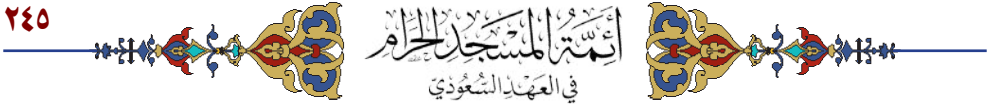 ٢٤٥
أَئِمَّةُ المَسْجِدِ الحَرَامِ
في العَهْدِ السُّعُودِيّ